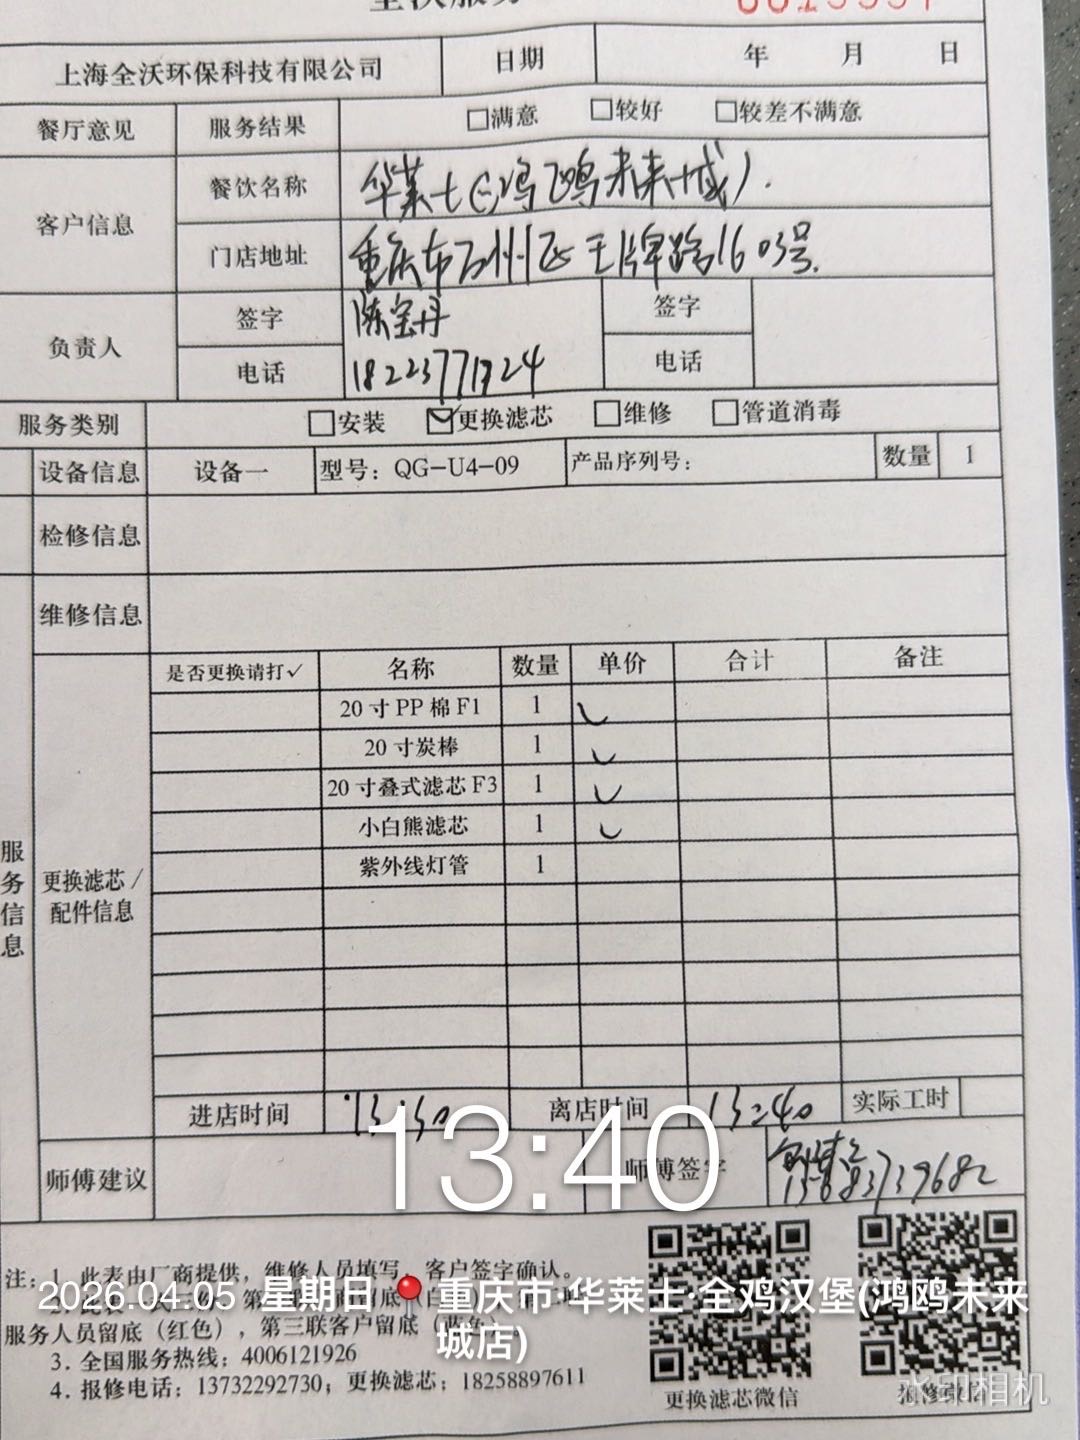 上海全沃环保科技有限公司 日期 年 月 日
餐厅意见 服务结果 □满意 □较好 □较差不满意
客户信息 餐饮名称 华莱士(鸿鸥未来城).
门店地址 重庆市万州区王牌路1603号.
负责人 签字 陈宝丹 签字
电话 18223771724 电话
服务类别 □安装 ☑更换滤芯 □维修 □管道消毒
设备信息 设备一 型号：QG-U4-09 产品序列号： 数量 1
检修信息
维修信息
服务信息
更换滤芯/配件信息
是否更换请打✓ 名称 数量 单价 合计 备注
20寸PP棉F1 1 ✓
20寸炭棒 1 ✓
20寸叠式滤芯F3 1 ✓
小白熊滤芯 1 ✓
紫外线灯管 1
进店时间 离店时间 13:40 实际工时
13:40
师傅建议 师傅签字
注：1. 此表由厂商提供，维修人员填写，客户签字确认。
2026.04.05 星期日 重庆市·华莱士·全鸡汉堡(鸿鸥未来城店)
服务人员留底（红色），第三联客户留底
3. 全国服务热线：4006121926
4. 报修电话：13732292730；更换滤芯：18258897611
更换滤芯微信
水印相机